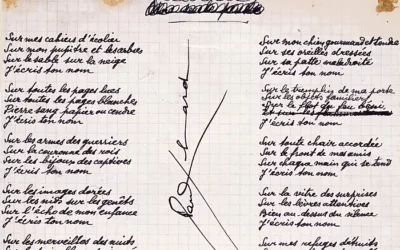 Sur mes cahiers d'écolier
Sur mon pupitre et les arbres
Sur le sable sur la neige
J'écris ton nom
Sur toutes les pages lues
Sur toutes les pages blanches
Pierre sang papier ou cendre
J'écris ton nom
Sur les armes des guerriers
Sur la couronne des rois
Sur les bijoux des captives
J'écris ton nom
Sur les images dorées
Sur les nids sur les genêts
Sur l'écho de mon enfance
J'écris ton nom
Sur les merveilles des nuits
Paul Eluard
Sur mon chien gourmand et tendre
Sur ses oreilles dressées
Sur sa patte maladroite
J'écris ton nom
Sur le tremplin de ma porte
Sur les objets familiers
Sur le flot du feu béni
J'écris ton nom
Sur toute chair accordée
Sur le front de mes amis
Sur chaque main qui se tend
J'écris ton nom
Sur la vitre des surprises
Sur les lèvres attentives
Bien au-dessus du silence
J'écris ton nom
Sur mes refuges détruits